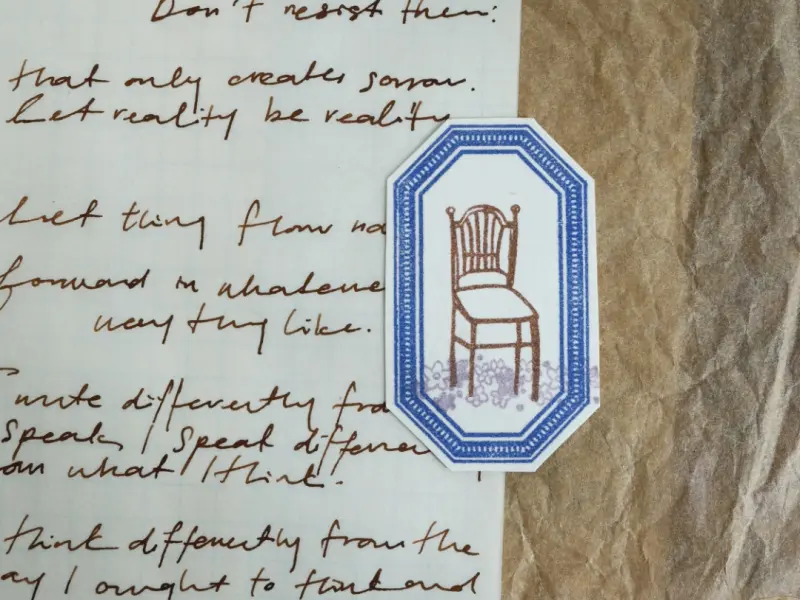 Don't resist them:
that only creates sorrow.
Let reality be reality
Let thing flow na
forward in whatever
way they like.
I write differently fro
speak, I speak differen
om what I think.
I think differently from the
ay I ought to think and